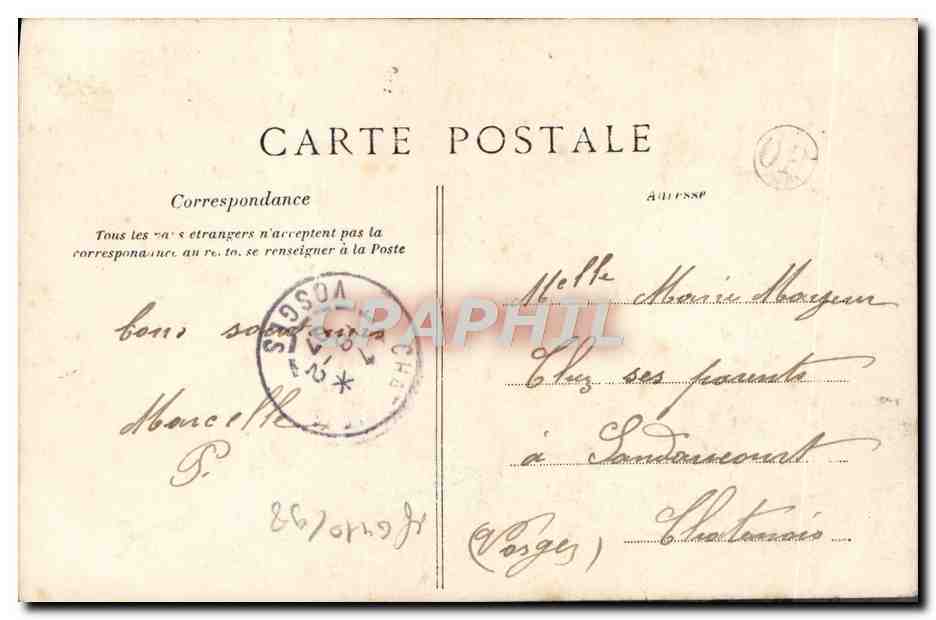 CARTE POSTALE
OR
Correspondance
Tous les pays étrangers n'acceptent pas la
correspondance au recto, se renseigner à la Poste
bons souvenirs
Marcelle
P.
VOSGES
CPAPHIL
Adresse
Melle Marie Mayeur
Chez ses parents
à Sandaucourt
Chatenois
(Vosges)